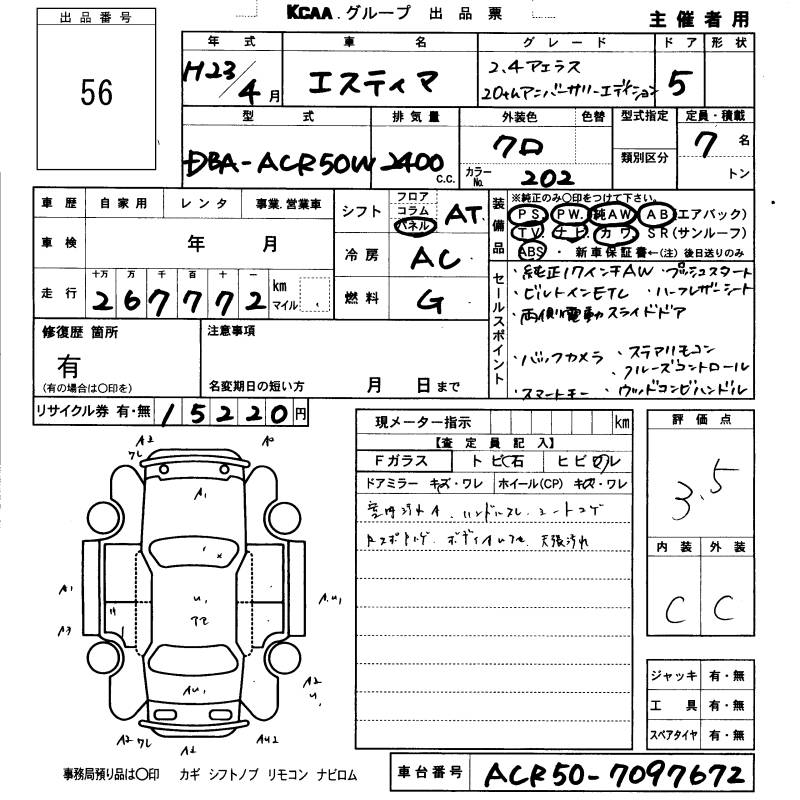 KCAA グループ 出品票
主催者用
出品番号
56
年式 車名 グレード ドア 形状
H23/4月 エスティマ 2.4アエラス 5
20thアニバーサリーエディション
型式 排気量 外装色 色替 型式指定 定員・積載
DBA-ACR50W 2400 c.c. クロ 7名
カラーNo. 202 類別区分 トン
車歴 自家用 レンタ 事業.営業車
車検 年 月
走行 十万 万 千 百 十 一 km マイル
267772
シフト フロア コラム パネル AT
冷房 AC
燃料 G
装備品 ※純正のみ○印をつけて下さい。
PS PW. 純AW AB エアバック)
TV. ナビ. カワ. SR(サンルーフ)
ABS ・ 新車保証書←(注) 後日送りのみ
セールスポイント
・純正17インチAW ・プッシュスタート
・ビルトインETC ・ハーフレザーシート
・両側電動スライドドア
・バックカメラ ・ステアリモコン
・クルーズコントロール
・スマートキー ・ウッドコンビハンドル
修復歴 箇所 注意事項
有
(有の場合は○印を) 名変期日の短い方 月 日まで
リサイクル券 有・無 15220円
現メーター指示 km
【査定員記入】
Fガラス トビ石 ヒビワレ
ドアミラー キズ・ワレ ホイール(CP) キズ・ワレ
室内汚れA、ハンドルスレ、シートコゲ
天張汚れ
評価点
3.5
内装 外装
C C
A2 ワレ A2
A1
A1 U1 A,U1
A3
AU1 A2 U1
A2 ワレ A2 AU2
ジャッキ 有・無
工具 有・無
スペアタイヤ 有・無
事務局預り品は○印 カギ シフトノブ リモコン ナビロム
車台番号 ACR50-7097672